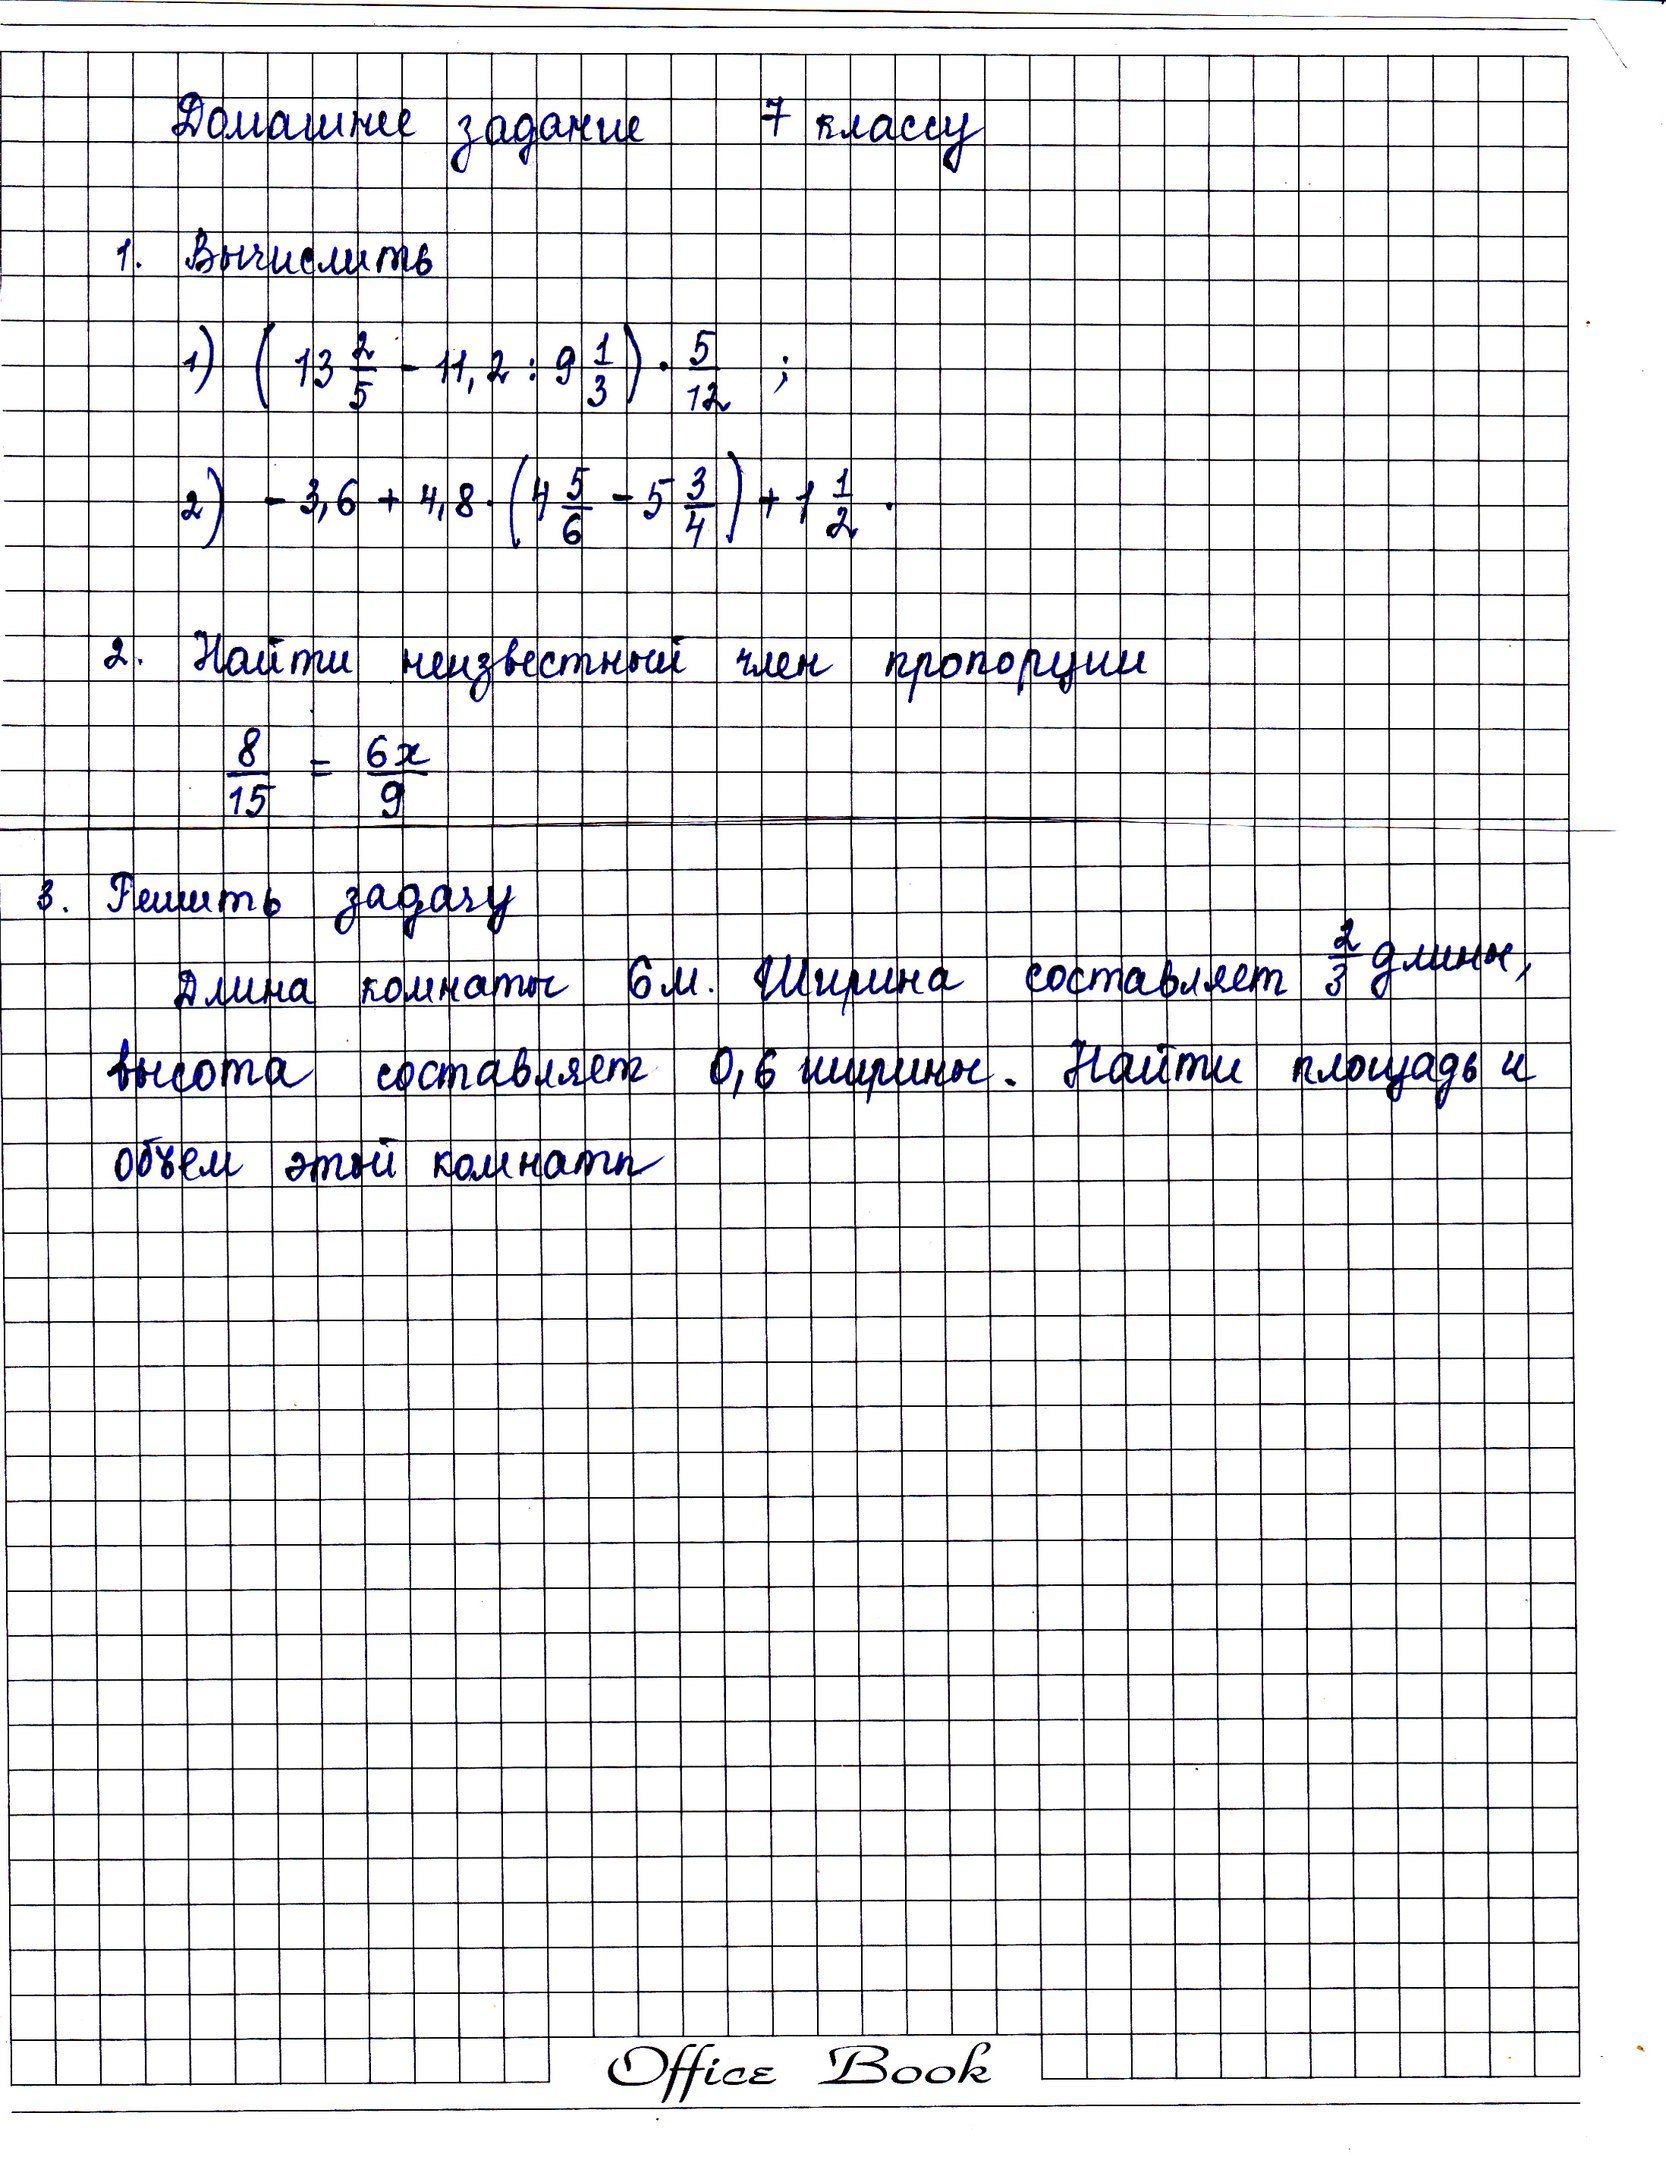 Домашнее задание 7 классу
1. Вычислить
1) (13 2/5 - 11,2 : 9 1/3) · 5/12 ;
2) - 3,6 + 4,8 · (4 5/6 - 5 3/4) + 1 1/2 .
2. Найти неизвестный член пропорции
8/15 = 6x/9
3. Решить задачу
Длина комнаты 6 м. Ширина составляет 2/3 длины,
высота составляет 0,6 ширины. Найти площадь и
объем этой комнаты
Office Book